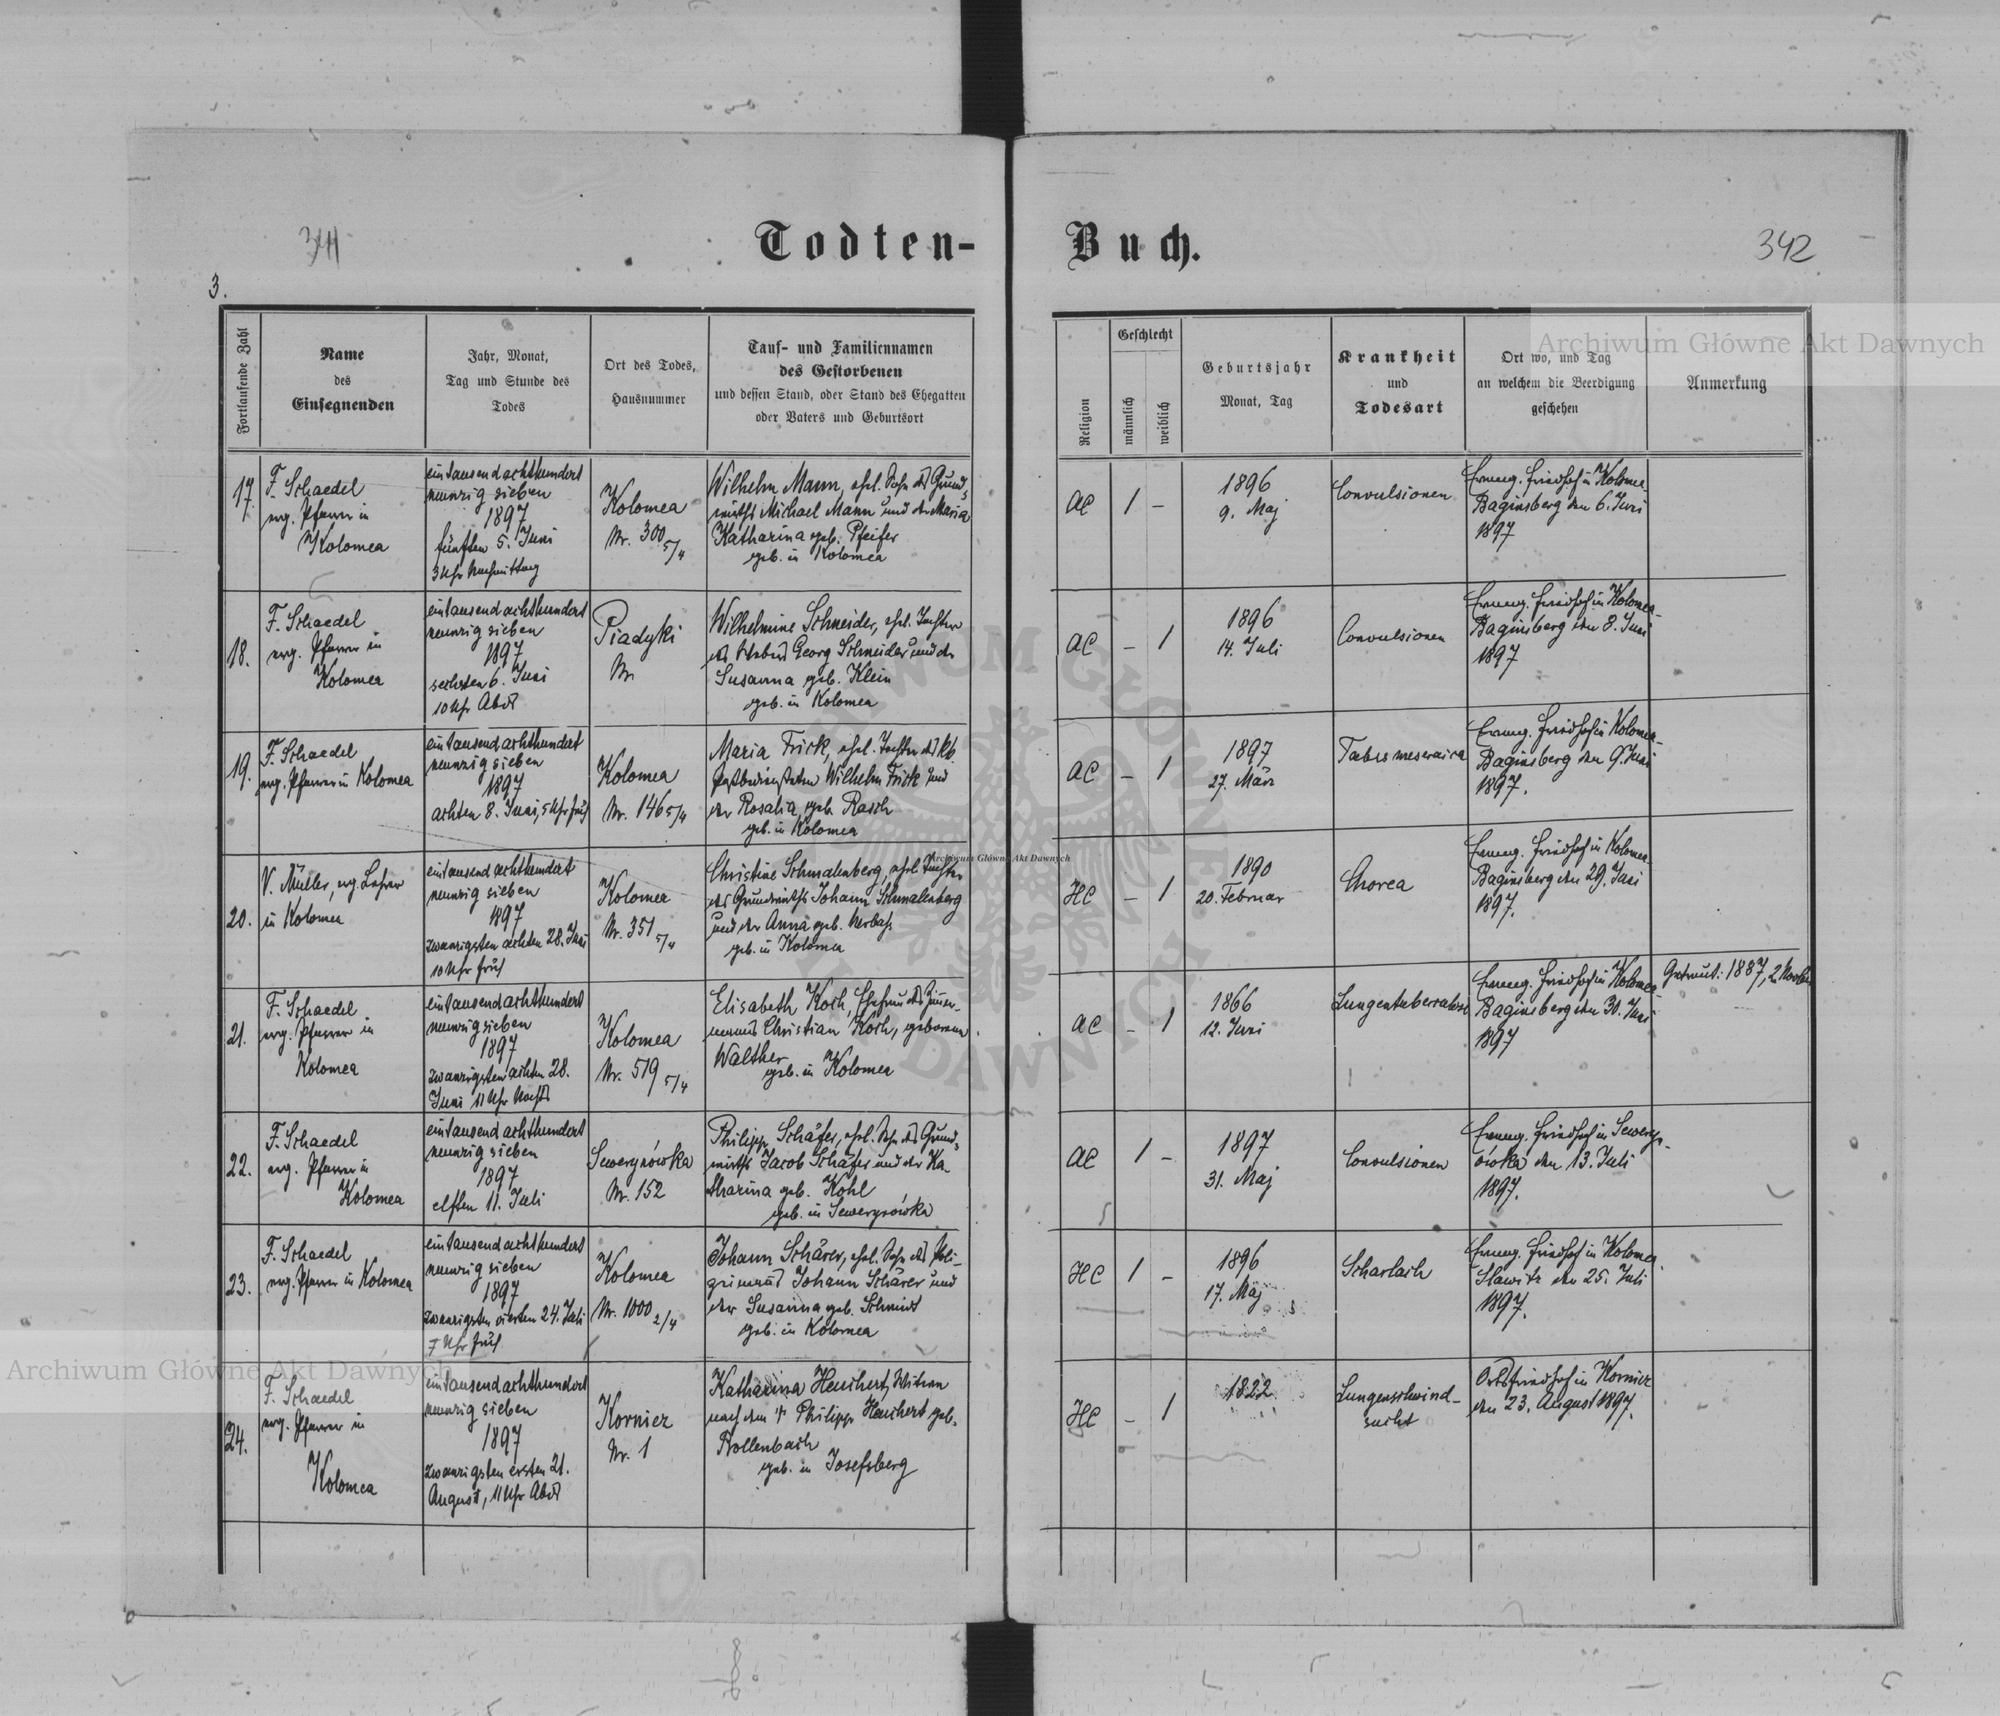 341
Todten-
Buch.
342
3.
Fortlaufende Zahl
Name
des
Einsegnenden
Jahr, Monat,
Tag und Stunde des
Todes
Ort des Todes,
Hausnummer
Tauf- und Familiennamen
des Gestorbenen
und dessen Stand, oder Stand des Ehegatten
oder Vaters und Geburtsort
Religion
Geschlecht
männlich
weiblich
Geburtsjahr
Monat, Tag
Krankheit
und
Todesart
Ort wo, und Tag
an welchem die Beerdigung
geschehen
Anmerkung
17.
F. Schaedel
evg. Pfarrer in
Kolomea
eintausend achthundert
neunzig sieben
1897
fünften 5. Juni
3 Uhr Nachmittag
Kolomea
Nr. 300 5/4
Wilhelm Mann, ehel. Sohn des Grund-
wirths Michael Mann und der Maria
Katharina geb. Pfeifer
geb. in Kolomea
AC
1
–
1896
9. Maj
Convulsionen
Evang. Friedhof in Kolomea
Baginsberg den 6. Juni
1897
18.
F. Schaedel
evg. Pfarrer in
Kolomea
eintausend achthundert
neunzig sieben
1897
sechsten 6. Juni
10 Uhr Abds
Piadyki
Nr.
Wilhelmine Schneider, ehel. Tochter
des Webers Georg Schneider und der
Susanna geb. Klein
geb. in Kolomea
AC
–
1
1896
14. Juli
Convulsionen
Evang. Friedhof in Kolomea-
Baginsberg den 8. Juni
1897
19.
F. Schaedel
evg. Pfarrer in Kolomea
eintausend achthundert
neunzig sieben
1897
achten 8. Juni, 5 Uhr früh
Kolomea
Nr. 146 5/4
Maria Frick, ehel. Tochter des kk.
Postbediensteten Wilhelm Frick und
der Rosalia geb. Rasch
geb. in Kolomea
AC
–
1
1897
27. März
Tabes meseraica
Evang. Friedhof in Kolomea-
Baginsberg den 9. Juni
1897.
20.
V. Müller, evg. Lehrer
in Kolomea
eintausend achthundert
neunzig sieben
1897
zwanzigsten achten 28. Juni
10 Uhr früh
Kolomea
Nr. 351 5/4
Christine Schmalenberg, ehel. Tochter
des Grundwirths Johann Schmalenberg
und der Anna geb.
geb. in Kolomea
HC
–
1
1890
20. Februar
Chorea
Evang. Friedhof in Kolomea-
Baginsberg den 29. Juni
1897.
21.
F. Schaedel
evg. Pfarrer in
Kolomea
eintausend achthundert
neunzig sieben
1897
zwanzigsten achten 28.
Juni 11 Uhr Nachts
Kolomea
Nr. 519 5/4
Elisabeth Koch, Ehefrau des Zimmer-
manns Christian Koch, geborene
Walther
geb. in Kolomea
AC
–
1
1866
12. Juni
Lungentuberculose
Evang. Friedhof in Kolomea-
Baginsberg den 30. Juni
1897
Getraut: 1887, 2
22.
F. Schaedel
evg. Pfarrer in
Kolomea
eintausend achthundert
neunzig sieben
1897
elften 11. Juli
Sewerynówka
Nr. 152
Philipp Schäfer, ehel. Sohn des Grund-
wirths Jacob Schäfer und der Ka-
tharina geb. Kohl
geb. in Sewerynówka
AC
1
–
1897
31. Maj
Convulsionen
Evang. Friedhof in Seweryn-
ówka den 13. Juli
1897.
23.
F. Schaedel
evg. Pfarrer in Kolomea
eintausend achthundert
neunzig sieben
1897
zwanzigsten vierten 24. Juli
7 Uhr früh
Kolomea
Nr. 1000 2/4
Johann Schärer, ehel. Sohn des
Johann Schärer und
der Susanna geb. Schmidt
geb. in Kolomea
HC
1
–
1896
17. Maj
Scharlach
Evang. Friedhof in Kolomea
Slawitz den 25. Juli
1897.
24.
F. Schaedel
evg. Pfarrer in
Kolomea
eintausend achthundert
neunzig sieben
1897
zwanzigsten ersten 21.
August, 11 Uhr Abds
Kornicz
Nr. 1
Katharina Heuchert, Witwe
nach dem † Philipp Heuchert geb.
Rollenbach
geb. in Josefsberg
HC
–
1
1822
Lungenschwind-
sucht
Ortsfriedhof in Kornicz
den 23. August 1897.
Archiwum Główne Akt Dawnych
Archiwum Główne Akt Dawnych
Archiwum Główne Akt Dawnych
ARCHIWUM GŁÓWNE AKT DAWNYCH